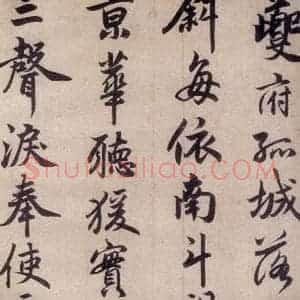 夔府孤城落
斜每依南斗
京華聽猨實
三聲淚奉使
ShufaZiliao.com